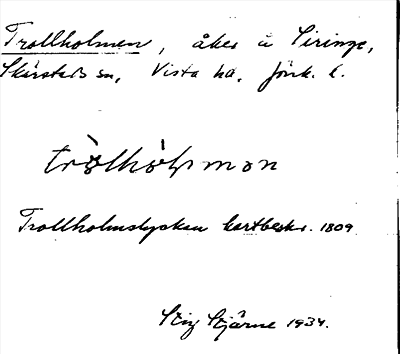 Trollholmen, åker å Siringe,
Skärstads sn, Vista hd, Jönk. l.
tròlhòlmən
Trollholmslyckan kartbeskr. 1809
Stig Stjärne 1934.